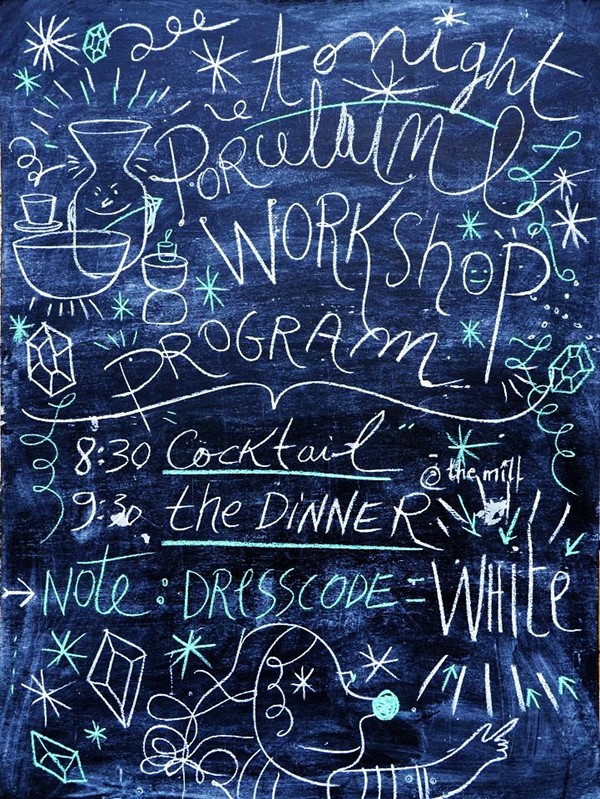 tonight
Porcelain
WORKShOP
PROGRAm
8:30 Cocktail
@ the mill
9:30 the DiNNER
→ Note: DRESSCODE = WHite